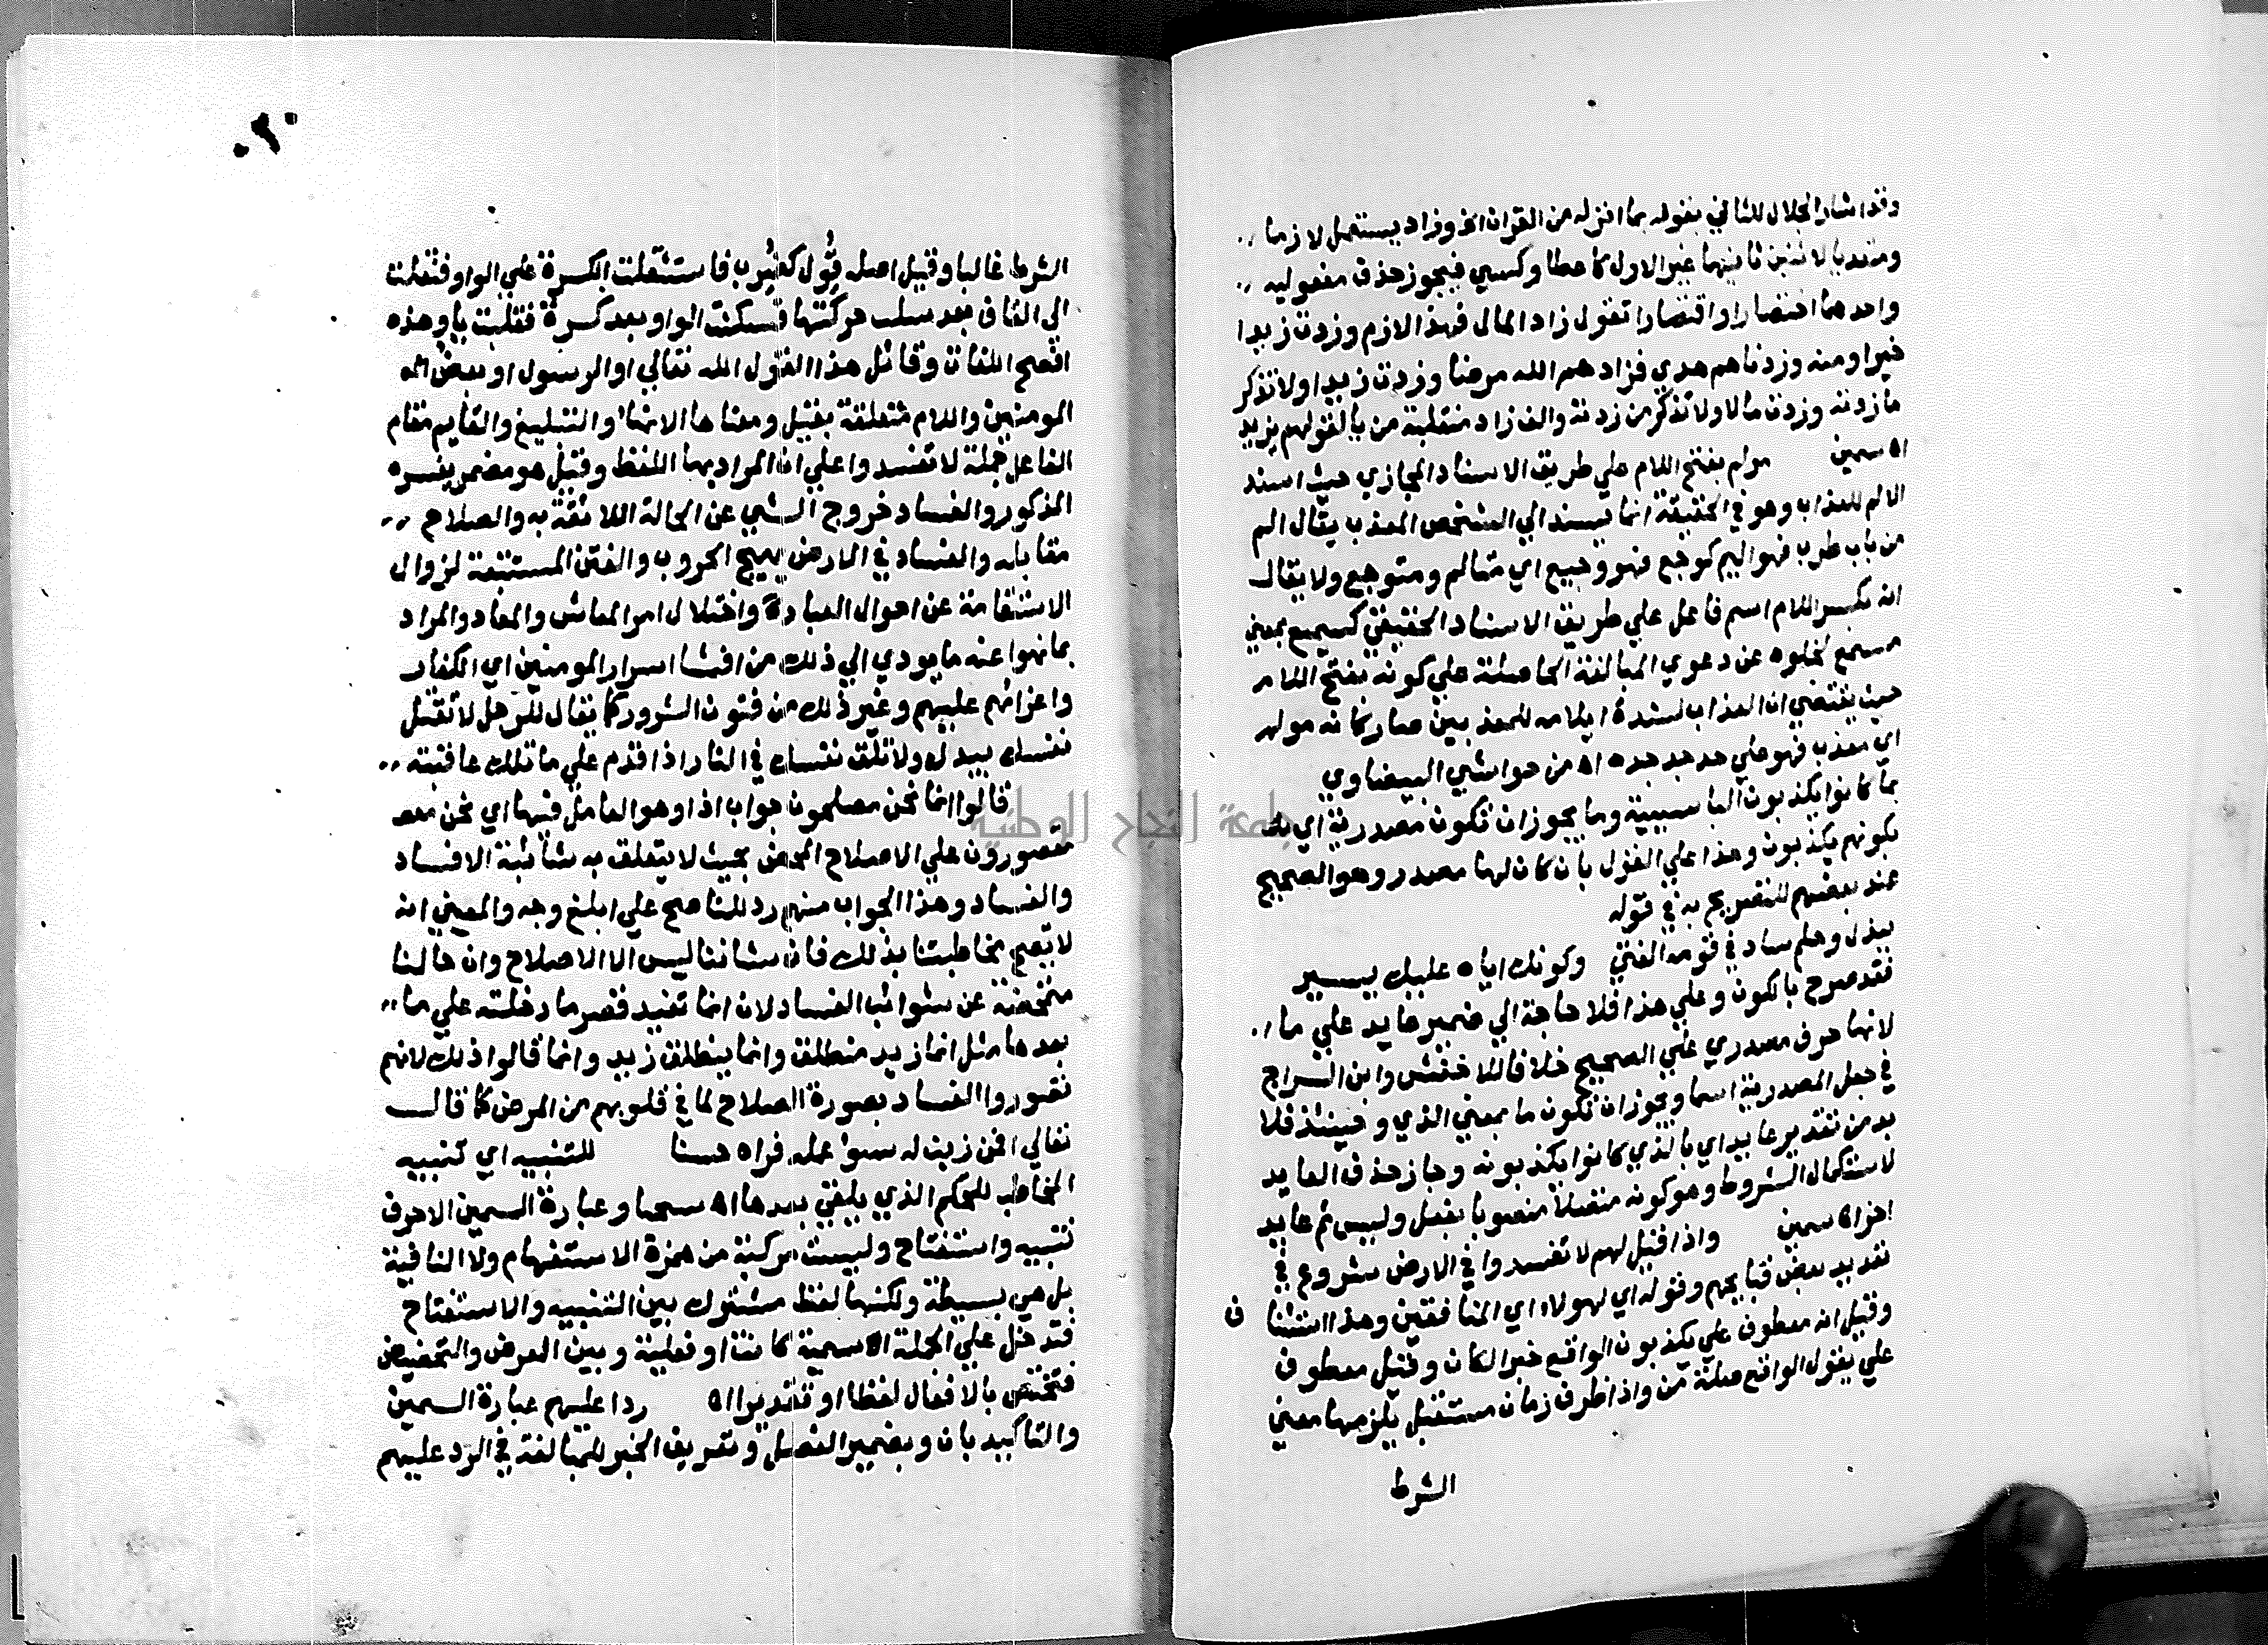 وقد اشار الجلال للثاني بقوله بما انزله من القران الخ وزاد يستعمل لازما
ومتعديا لاثنين ثانيهما غير الاول كاعطا وكسي فيجوز حذف مفعوليه
واحدهما اختصارا واقتصارا تقول زاد المال فهذا لازم وزدت زيدا
خيرا ومنه وزدناهم هدي فزادهم الله مرضا وزدت زيدا ولا تذكر
ما زدته وزدت مالا ولا تذكر من زدته والف زاد منقلبة من يا لقولهم يزيد
اه سمين مولم بفتح اللام علي طريق الاسناد المجازي حيث اسند
الالم للعذاب وهو في الحقيقة انما يسند الي الشخص المعذب يقال الم
من باب طرب فهو اليم كوجع فهو وجيع اي متالم ومتوجع ولا يقال
انه بكسر اللام اسم فاعل علي طريق الاسناد الحقيقي كسميع بمعني
مسمع لخلوه عن دعوي المبالغة الحاصلة علي كونه بفتح اللام
حيث يقتضي ان العذاب لشدة ايلامه للمعذبين صار كانه مولم
اي معذب فهو علي حد جد جده اه من حواشي البيضاوي
بما كانوا يكذبون البا سببية وما يجوز ان تكون مصدرية اي بك
بكونهم يكذبون وهذا علي القول بان كان لها مصدر وهو الصحيح
عند بعضهم للتصريح به في قوله
ببذل وحلم ساد في قومه الفتي وكونك اياه عليك يسير
فقد صرح بالكون وعلي هذا فلا حاجة الي ضمير عايد علي ما
لانها حرف مصدري علي الصحيح خلافا للاخفش وابن السراج
في جعل المصدرية اسما ويجوز ان تكون ما بمعني الذي وحينئذ فلا
بد من تقدير عايد اي بالذي كانوا يكذبونه وجاز حذف العايد
لاستكمال الشروط وهو كونه متصلا منصوبا بفعل وليس ثم عايد
اخر اه سمين واذا قيل لهم لا تفسدوا في الارض شروع في
تعديد بعض قبايحهم وقوله اي لهولاء اي المنافقين وهذا استئنا ف
وقيل انه معطوف علي يكذبون الواقع خبرا لكان وقيل معطوف
علي يقول الواقع صلة من واذا ظرف زمان مستقبل يلزمها معني
الشرط
الشرط غالبا وقيل اصله قول كضرب فاستثقلت الكسرة علي الواو فنقلت
الي القاف بعد سلب حركتها فسكنت الواو بعد كسرة فقلبت يا وهذه
افصح اللغات وقائل هذا القول الله تعالي او الرسول او بعض
المومنين واللام متعلقة بقيل ومعناها الانها والتبليغ والقايم مقام
الفاعل جملة لا تفسدوا علي ان المراد بها اللفظ وقيل هو مضمر يفسره
المذكور والفساد خروج الشي عن الحالة اللائقة به والصلاح
مقابله والفساد في الارض يهيج الحروب والفتن المستتبعة لزوال
الاستقامة عن احوال العباد واختلال امر المعاش والمعاد والمراد
بما نهوا عنه ما يودي الي ذلك من افشا اسرار المومنين اي الكفار
واغرائهم عليهم وغير ذلك من فنون الشرور كما يقال للرجل لا تقتل
نفسك بيدك ولا تلق نفسك في النار اذا اقدم علي ما تلك عاقبته
قالوا انما نحن مصلحون جواب اذا وهو العامل فيها اي نحن
مقصورون علي الاصلاح المحض بحيث لا يتعلق به شائبة الافساد
والفساد وهذا الجواب منهم رد للناصح علي ابلغ وجه والمعني انه
لا يصح مخاطبتنا بذلك فان شاننا ليس الا الاصلاح وان حالنا
متمحضة عن شوائب الفساد لان انما تفيد قصر ما دخلته علي ما
بعدها مثل انما زيد منطلق وانما ينطلق زيد وانما قالوا ذلك لانهم
تصوروا الفساد بصورة الصلاح لما في قلوبهم من المرض كما قال
تعالي افمن زين له سوء عمله فراه حسنا للتنبيه اي تنبيه
المخاطب للحكم الذي يلقي بعدها اه وعبارة السمين الا حرف
تنبيه واستفتاح وليست مركبة من همزة الاستفهام ولا النافية
بل هي بسيطة ولكنها لفظ مشترك بين التنبيه والاستفتاح
فتدخل علي الجملة الاسمية كانت او فعلية وبين العرض والتحضيض
فتختص بالافعال لفظا او تقديرا اه ردا عليهم عبارة السمين
والتاكيد بان وبضمير الفصل وتعريف الخبر للمبالغة في الرد عليهم
جامعة النجاح الوطنية